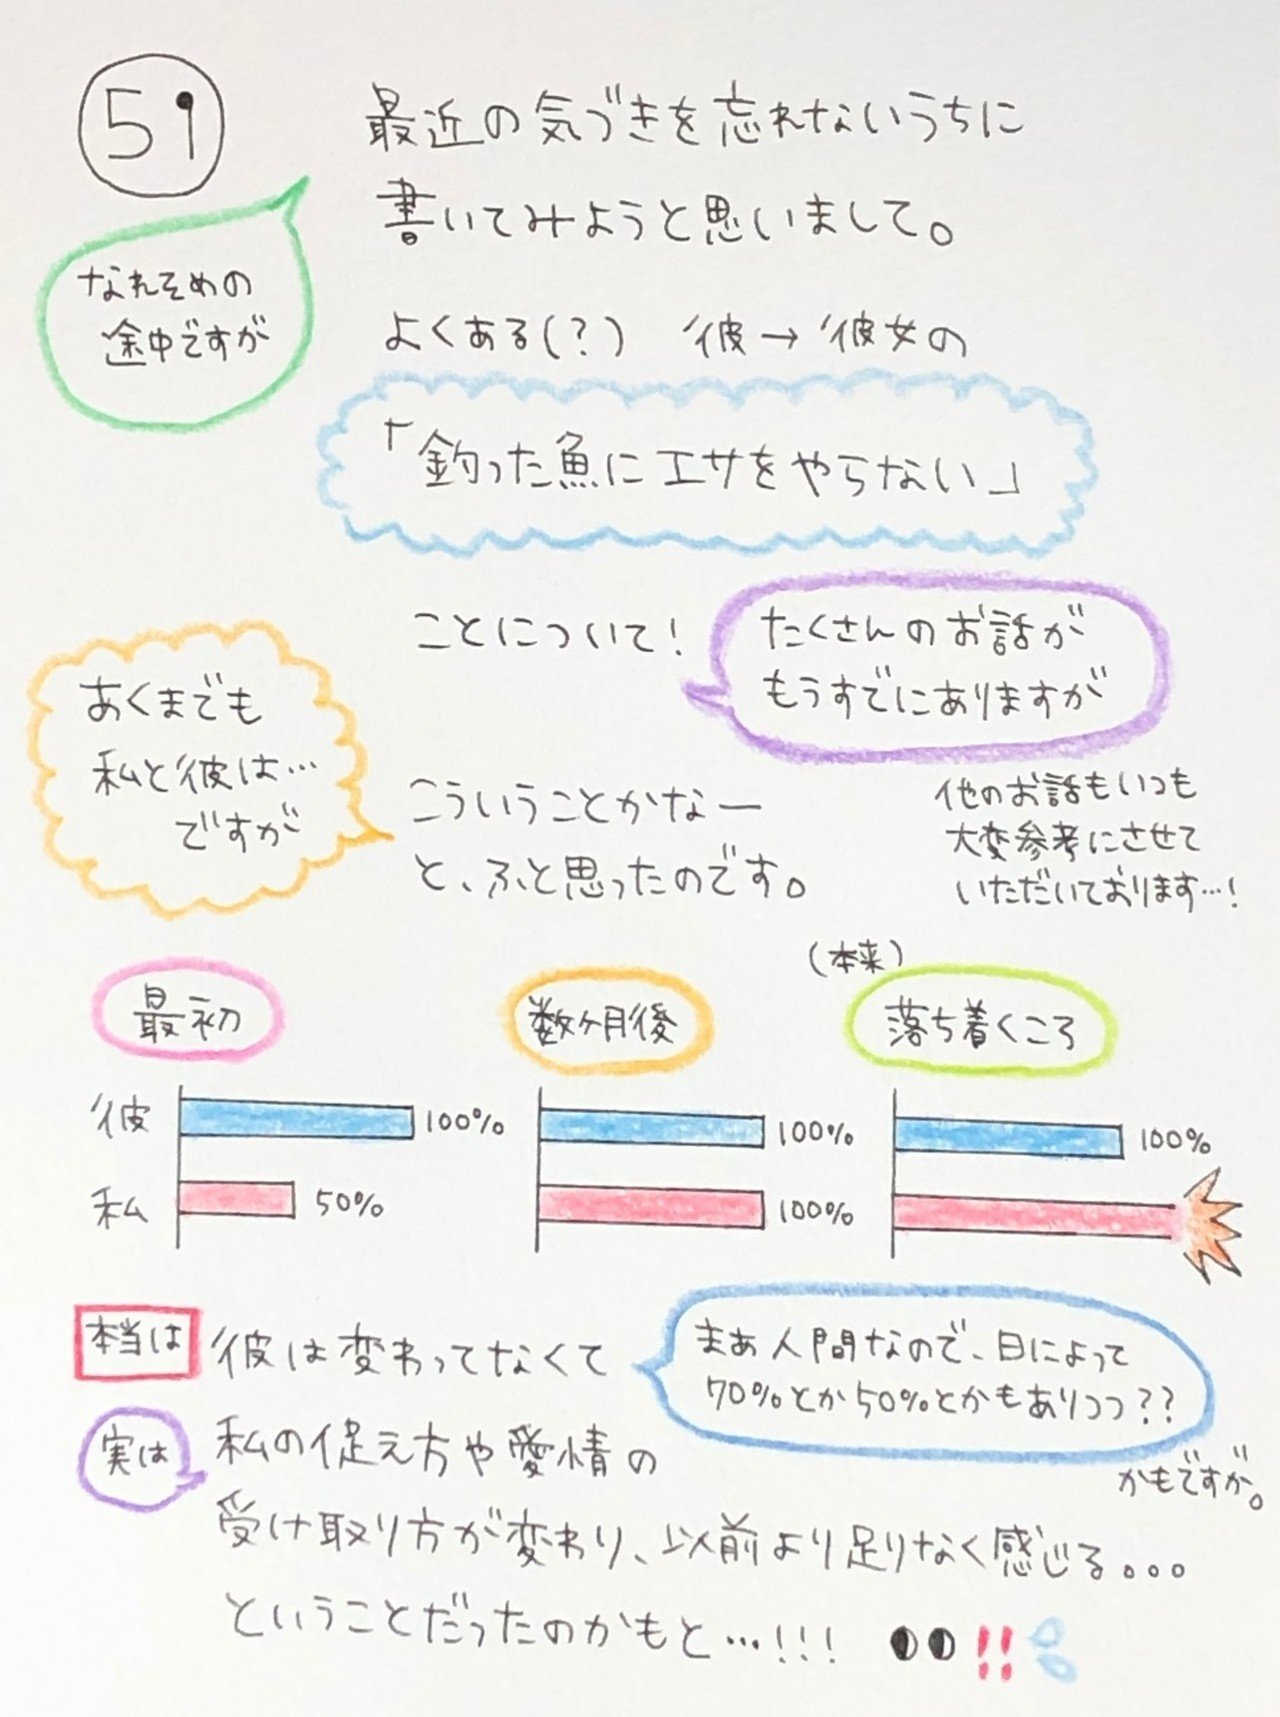 51
最近の気づきを忘れないうちに
書いてみようと思いまして。
なれそめの
途中ですが
よくある(?) 彼→彼女の
「釣った魚にエサをやらない」
ことについて!
たくさんのお話が
もうすでにありますが
他のお話もいつも
大変参考にさせて
いただいております…!
あくまでも
私と彼は…
ですが
こういうことかなー
と、ふと思ったのです。
最初
数ヶ月後
(本来)
落ち着くころ
彼 100% 100% 100%
私 50% 100%
本当は 彼は変わってなくて
まあ人間なので、日によって
70%とか50%とかもありつつ??
かもですが。
実は 私の促え方や愛情の
受け取り方が変わり、以前より足りなく感じる。。。
ということだったのかもと…!!! !!